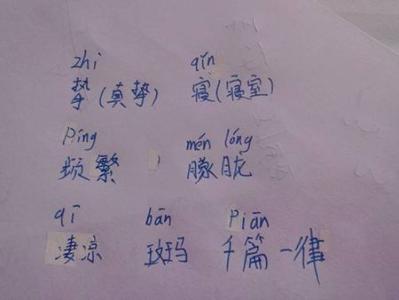 zhì qǐn
挚(真挚) 寝(寝室)
Píng mén lóng
频繁 朦胧
qī bān Piān
凄凉 斑玛 千篇一律